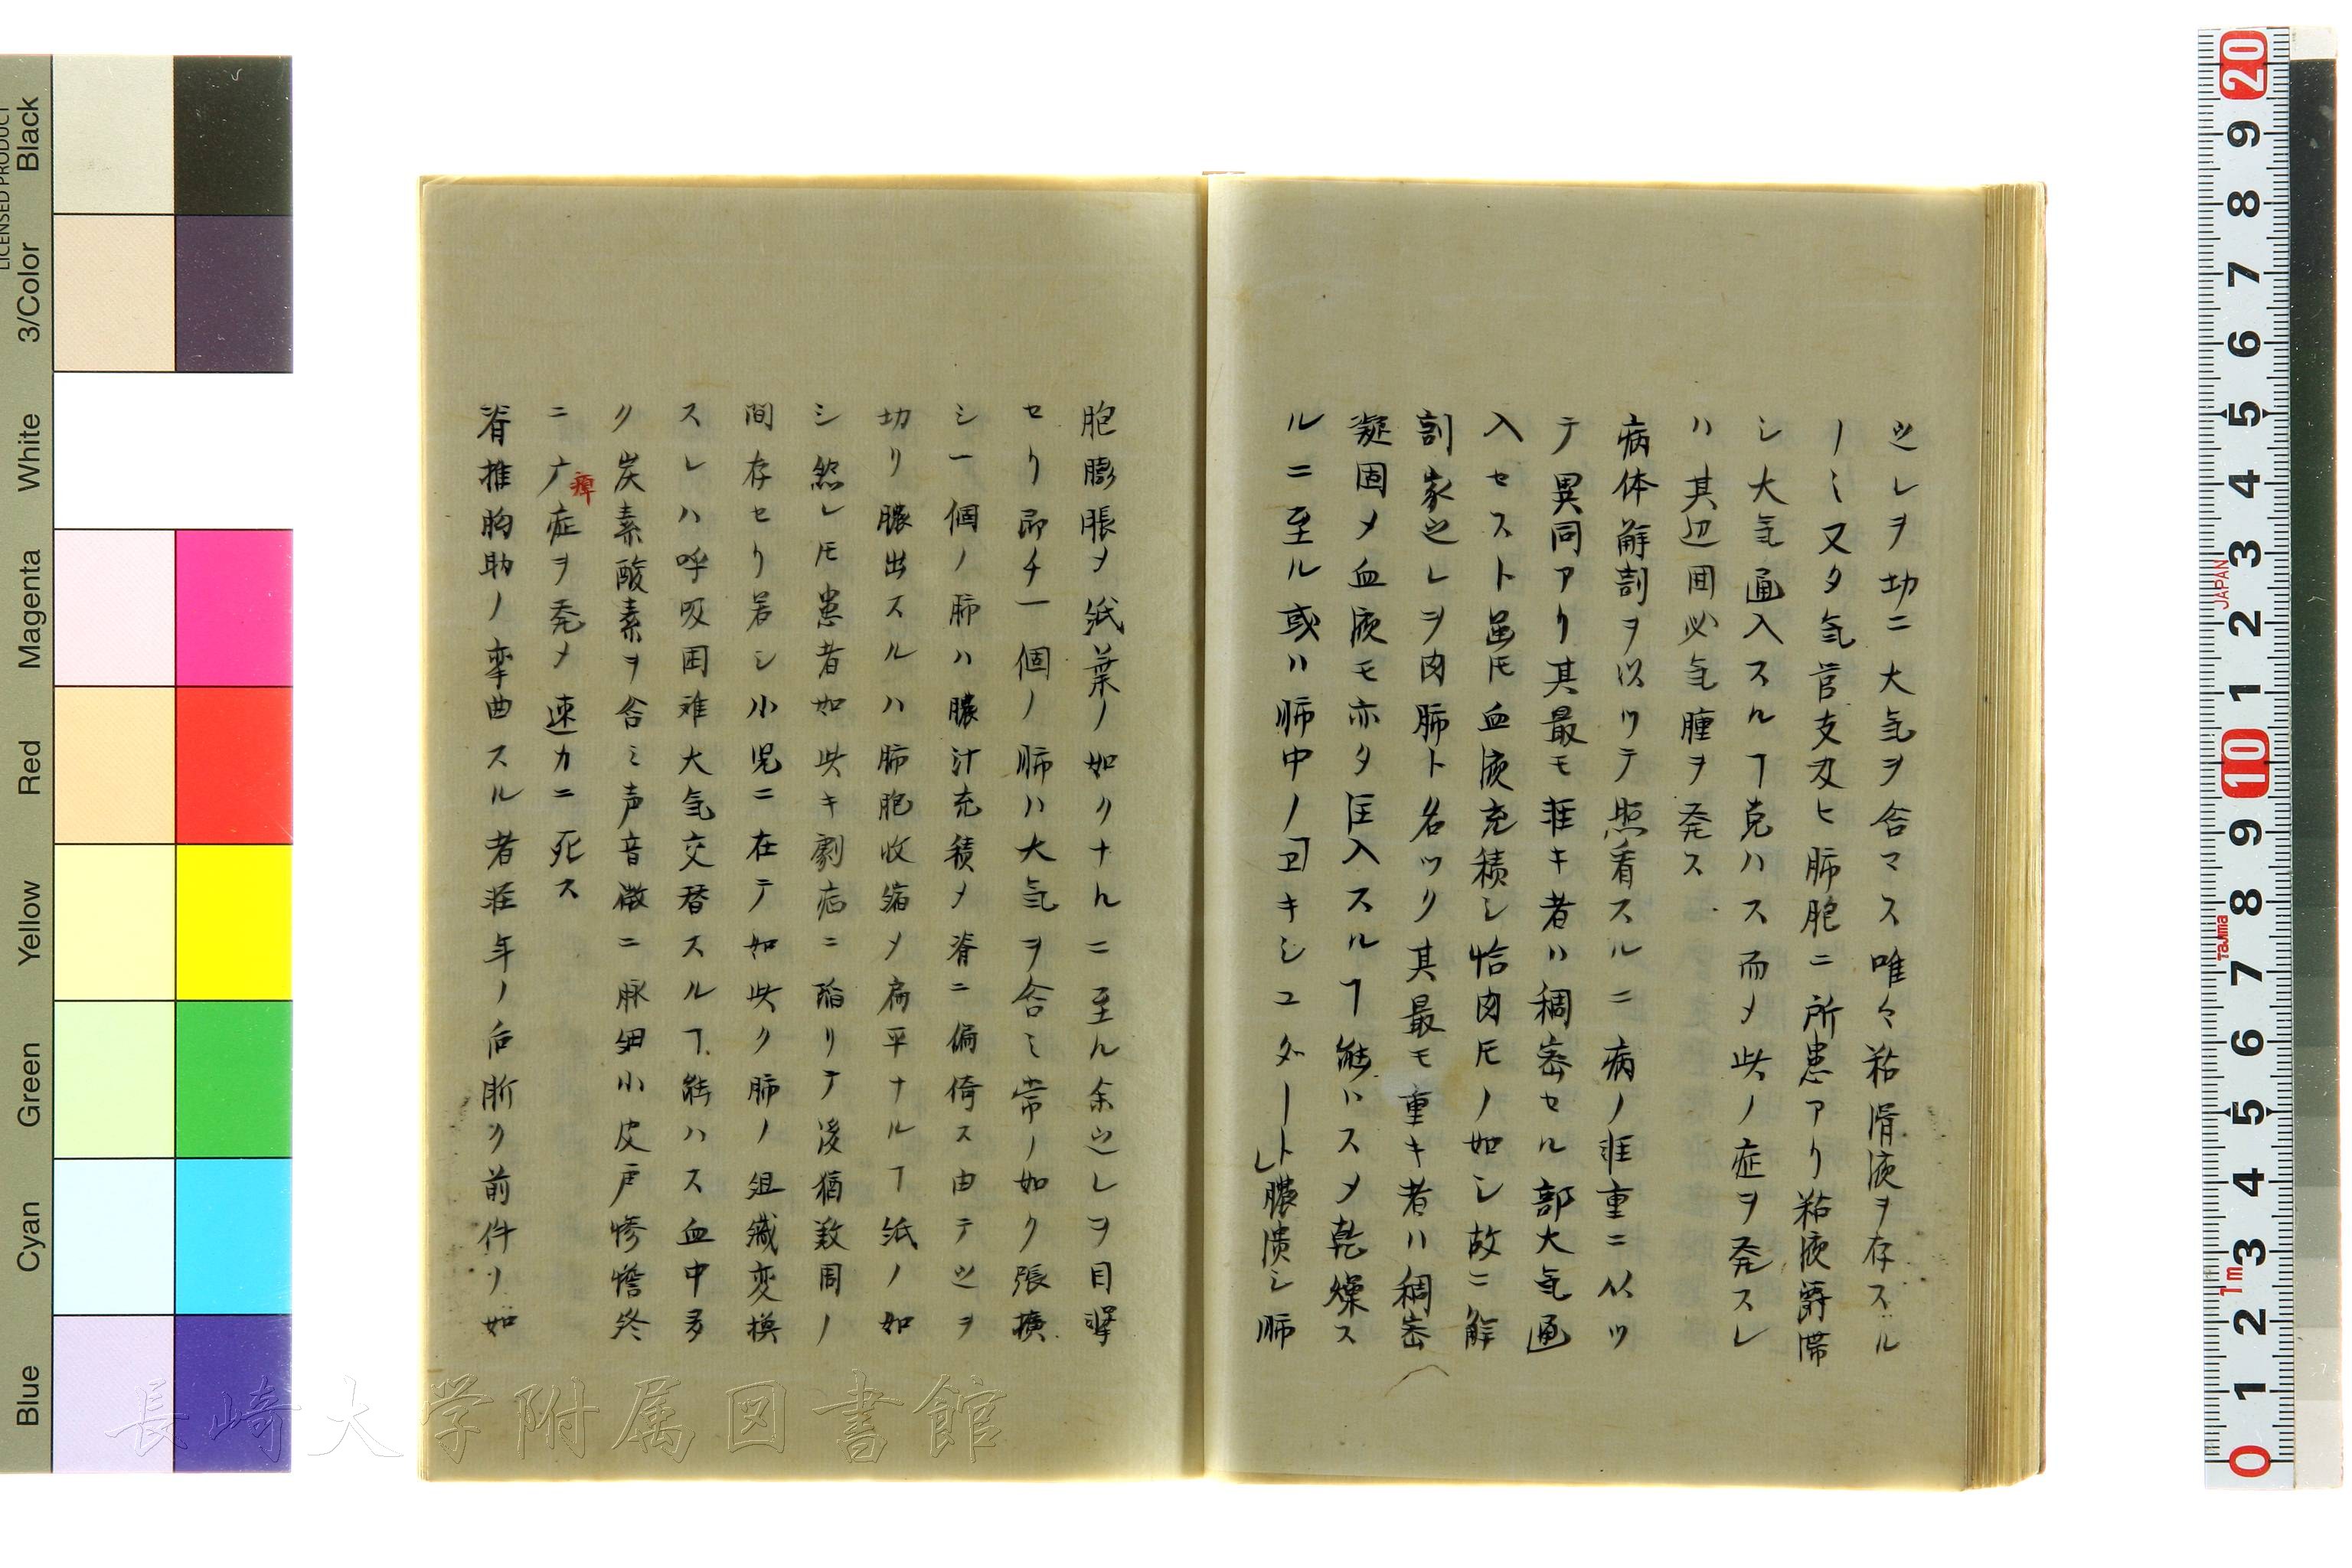 之レヲ切ニ大気ヲ含マス唯々粘滑液ヲ存スル
ノミ又タ気管支及ヒ肺胞ニ所患アリ粘液欝滞
シ大気通入スルヿ克ハス而メ此ノ症ヲ発スレ
ハ其辺囲必気腫ヲ発ス
病体解剖ヲ以ッテ照看スルニ病ノ軽重ニ以ッ
テ異同アリ其最モ軽キ者ハ稠密セル部大気通
入セスト雖𪜈血液充積シ恰肉𪜈ノ如シ故ニ解
剖家之レヲ肉肺ト名ツク其最モ重キ者ハ稠密
凝固メ血液モ亦タ圧入スルヿ能ハスメ乾燥ス
ルニ至ル或ハ肺中ノ卫キシユダート膿潰シ肺
胞膨脹メ紙葉ノ如クナルニ至ル余之レヲ目撃
セリ即チ一個ノ肺ハ大気ヲ含ミ常ノ如ク張擴
シ一個ノ肺ハ膿汁充積メ脊ニ偏倚ス由テ之ヲ
切リ膿出スルハ肺胞收縮メ扁平ナルヿ紙ノ如
シ然レ𪜈患者如此キ劇症ニ陥リテ後猶数周ノ
間存セリ若シ小児ニ在テ如此ク肺ノ組織変換
スレハ呼吸困难大気交替スルヿ能ハス血中多
ク炭素酸素ヲ含ミ声音微ニ脉細小皮戸惨憺終
ニ疒症ヲ発メ速カニ死ス
瘴
脊推胸肋ノ挛曲スル者荘年ノ后漸ク前件ノ如
長崎大学附属図書館
Black
3/Color
White
Magenta
Red
Yellow
Green
Cyan
Blue
LICENSED PRODUCT
20
9
8
7
6
5
4
3
2
1
10
9
8
7
6
5
4
3
2
1
0
JAPAN
Tajima
1m